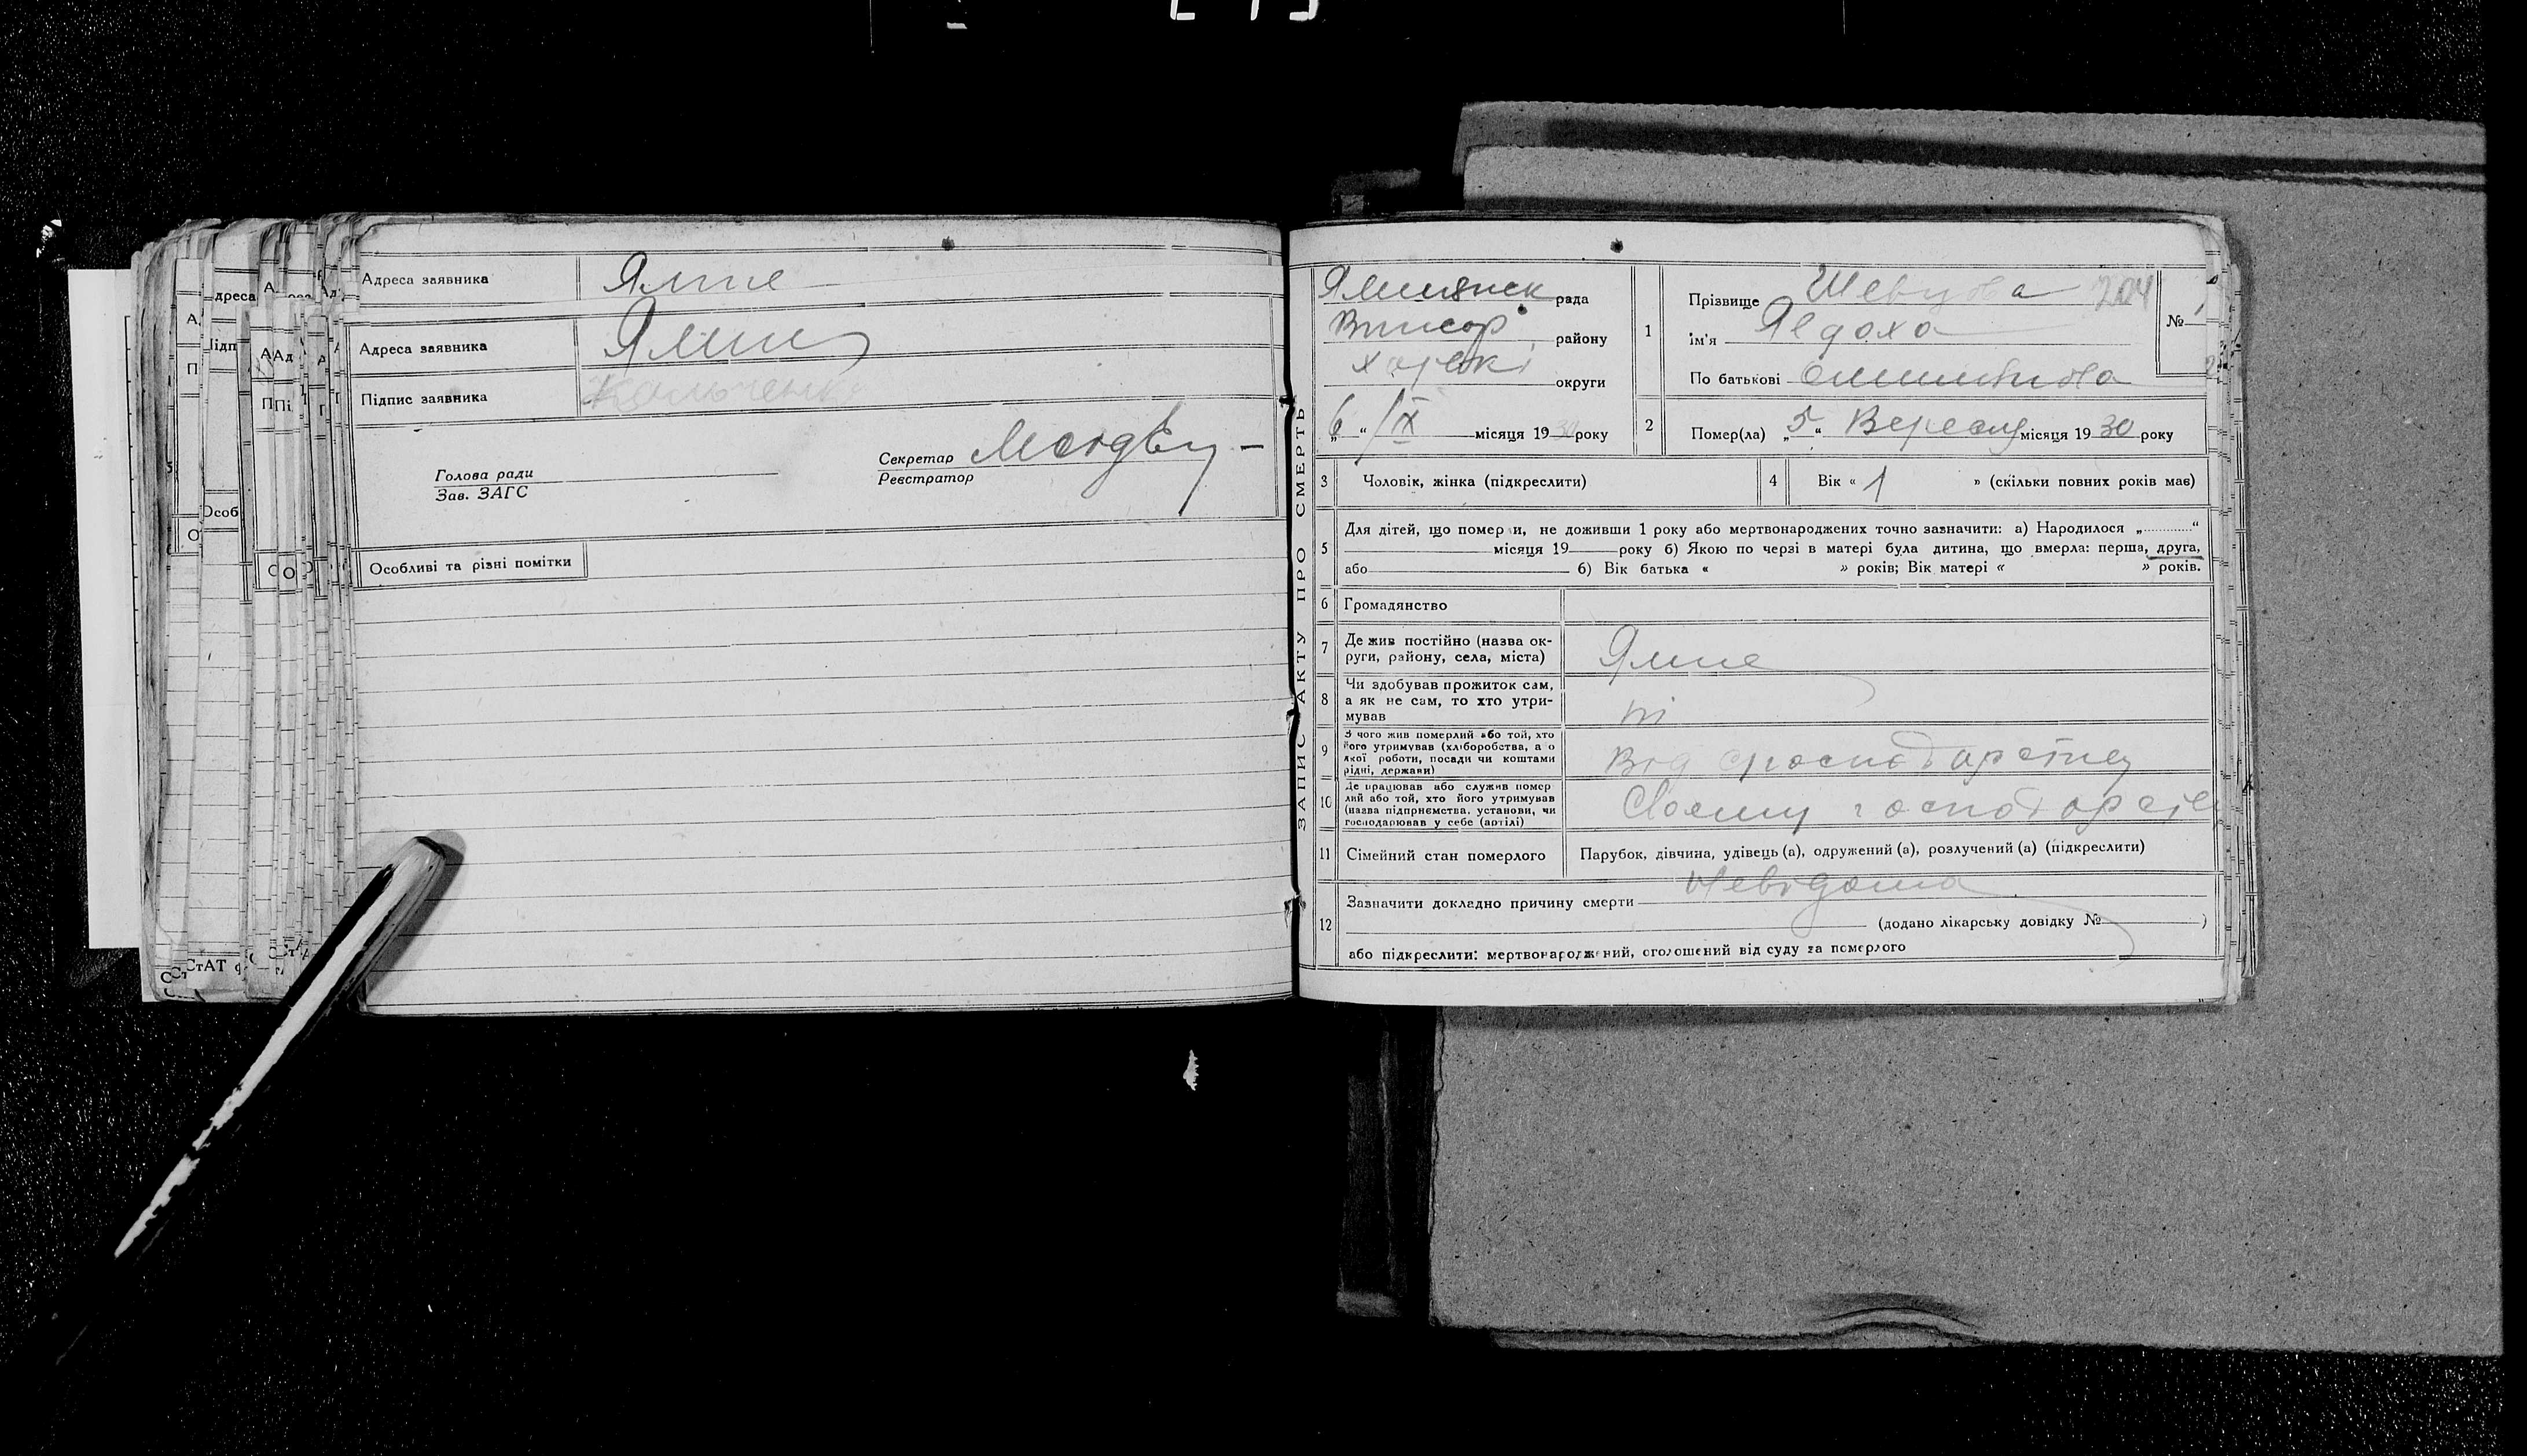 Адреса заявника Ямне
Адреса заявника Ямне
Підпис заявника Кальченко
Голова ради
Зав. ЗАГС
Секретар
Реєстратор
Особливі та різні помітки
ЗАПИС АКТУ ПРО СМЕРТЬ
рада
району
округи
„6“ /IX місяця 1930 року
1 Прізвище Шевцова 204
Ім'я Явдоха
По батькові
№
2 Помер(ла) „5“ Вересня місяця 1930 року
3 Чоловік, жінка (підкреслити)
4 Вік « 1 » (скільки повних років має)
5 Для дітей, що померли, не доживши 1 року або мертвонароджених точно зазначити: а) Народилося „............“
місяця 19 року б) Якою по черзі в матері була дитина, що вмерла: перша, друга,
або 6) Вік батька « » років; Вік матері « » років.
6 Громадянство
7 Де жив постійно (назва ок-
руги, району, села, міста) Ямне
8 Чи здобував прожиток сам,
а як не сам, то хто утри-
мував ні
9 З чого жив померлий або той, хто
його утримував (хліборобства, а о
якої роботи, посади чи коштами
рідні, держави) Від господарства
10 Де працював або служив помер
лий або той, хто його утримував
(назва підприємства, установи, чи
господарював у себе (артілі) Своєму господарстві
11 Сімейний стан померлого Парубок, дівчина, удівець (а), одружений (а), розлучений (а) (підкреслити)
12 Зазначити докладно причину смерти Невідома
(додано лікарську довідку № )
або підкреслити: мертвонароджений, оголошений від суду за померлого